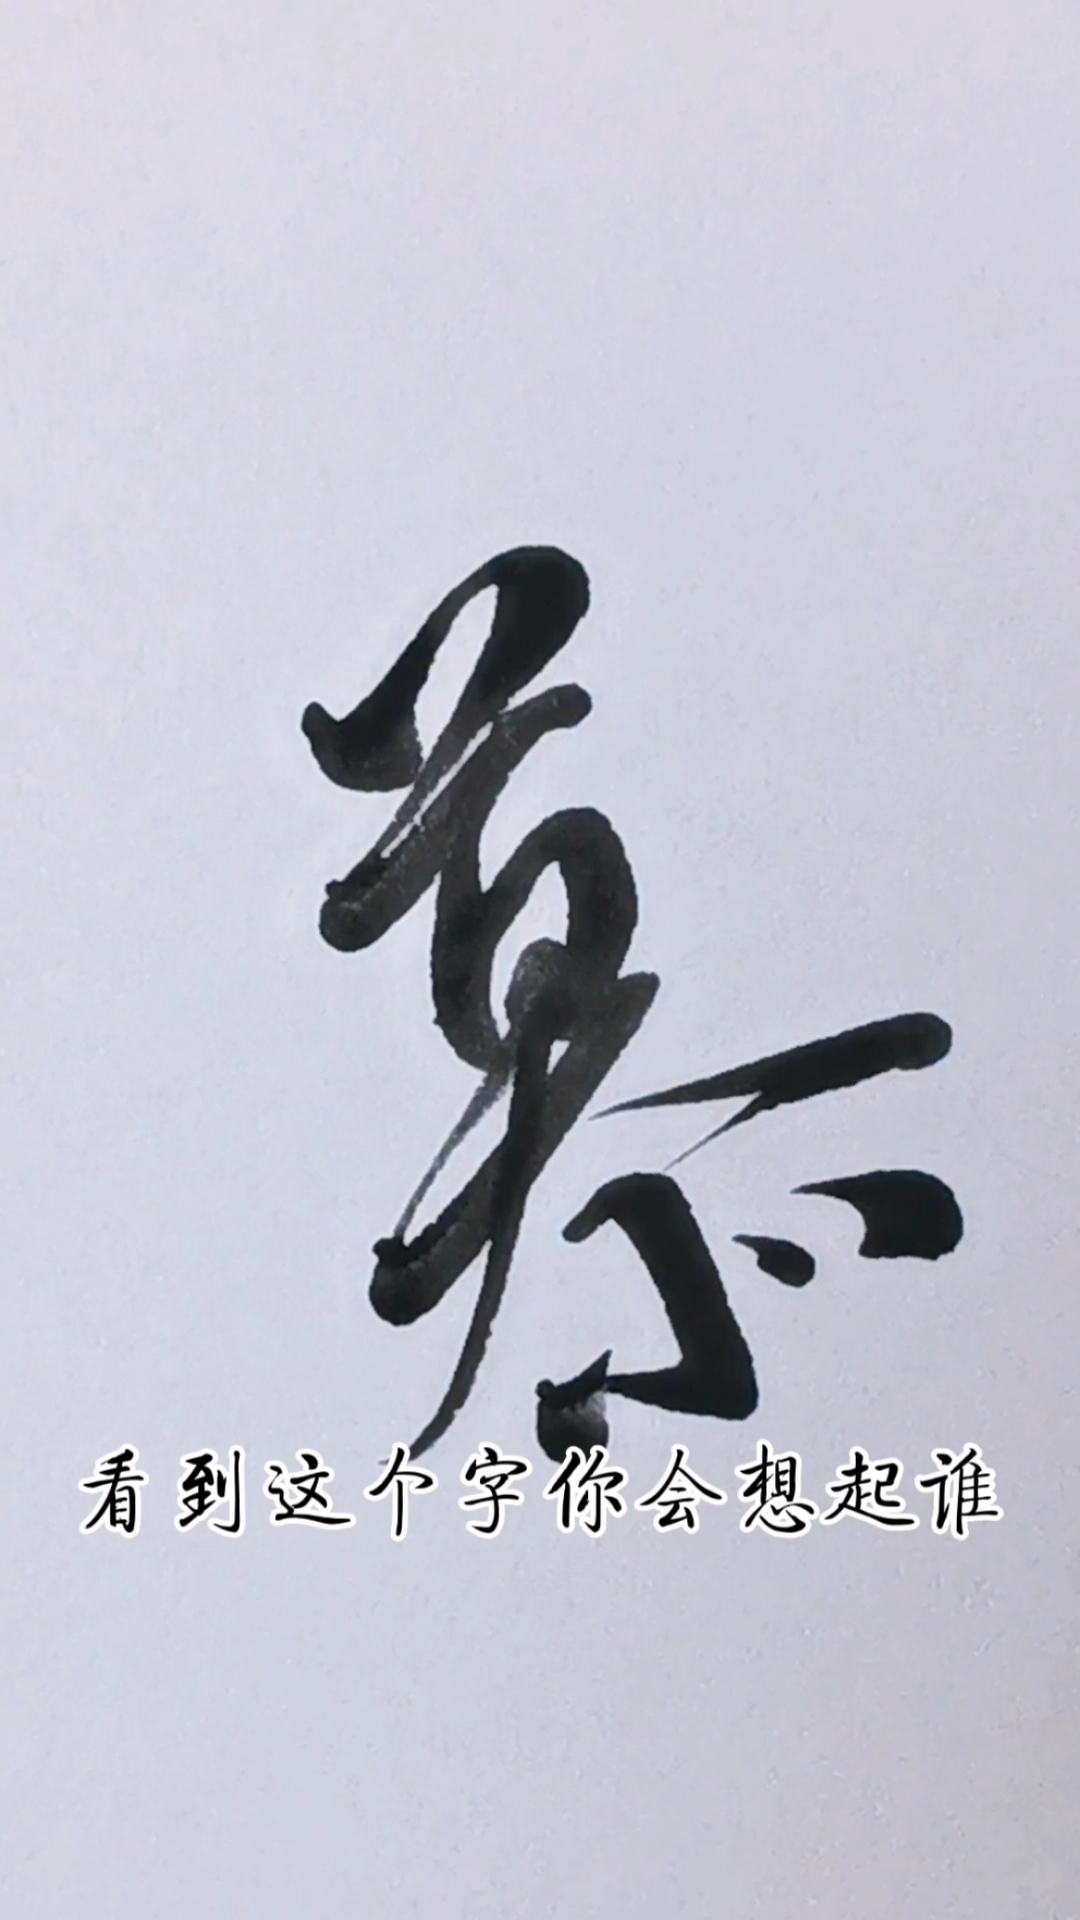 慕
看到这个字你会想起谁